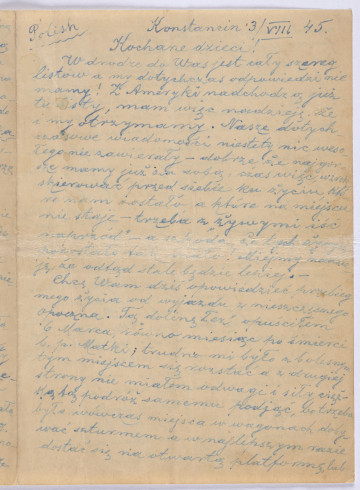 Polish
Konstancin 3/VIII 45.
Kochane dzieci!
W drodze do Was jest cały szereg
listów a my dotychczas odpowiedzi nie
mamy! Z Ameryki nadchodzą już
tu listy, mam więc nadzieję, że
i my otrzymamy. Nasze dotych
czasowe wiadomości niestety nic weso
łego nie zawierały – dobrze, że najgor
sze mamy już za sobą, czas więc wzrok
skierować przed siebie ku życiu, któ
re nam zostało a które na miejscu
nie staje – trzeba z żywymi iść
naprzód" – a szkoda, że tych żywych
pozostało tak mało! Miejmy nadzie
ję, że odtąd stale będzie lepiej. –
Chcę Wam dziś opowiedzieć przebieg
mego życia od wyjazdu z nieszczęsnego
Opoczna. Tą dolinę łez" opuściłem
6 Marca, równo miesiąc po śmierci
ś. p. Matki; trudno mi było z bolesnym
tym miejscem się rozstać a z drugiej
strony nie miałem odwagi i siły cięż
ką tą podróż samemu podjąć, bo trzeba
było wówczas miejsca w wagonach zdoby
wać szturmem a w najlepszym razie
dostać się na otwartą platformę lub